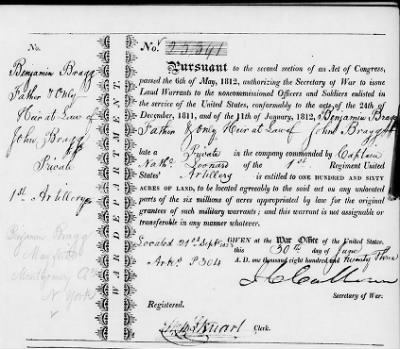 No.
Benjamin Bragg
Father & Only
Heir at Law of
John Bragg
Private
1st Artillery
Benjamin Bragg
Mayfield
Montgomery Co
N York
WAR DEPARTMENT.
No. 25,591
Pursuant to the second section of an Act of Congress,
passed the 6th of May, 1812, authorizing the Secretary of War to issue
Land Warrants to the noncommissioned Officers and Soldiers enlisted in
the service of the United States, conformably to the acts of the 24th of
December, 1811, and of the 11th of January, 1812, Benjamin Bragg
Father & Only Heir at Law of John Bragg
late a Private in the company commanded by Captain
Nathl. Leonard of the 1st Regiment United
States' Artillery is entitled to ONE HUNDRED AND SIXTY
ACRES OF LAND, to be located agreeably to the said act on any unlocated
parts of the six millions of acres appropriated by law for the original
grantees of such military warrants; and this warrant is not assignable or
transferable in any manner whatever.
Located 21st Sept.
GIVEN at the War Office of the United States,
this 30th day of June
Arks. P 304
A. D. one thousand eight hundred and Twenty Three
J C Calhoun
Secretary of War.
Registered.
Stuart Clerk.